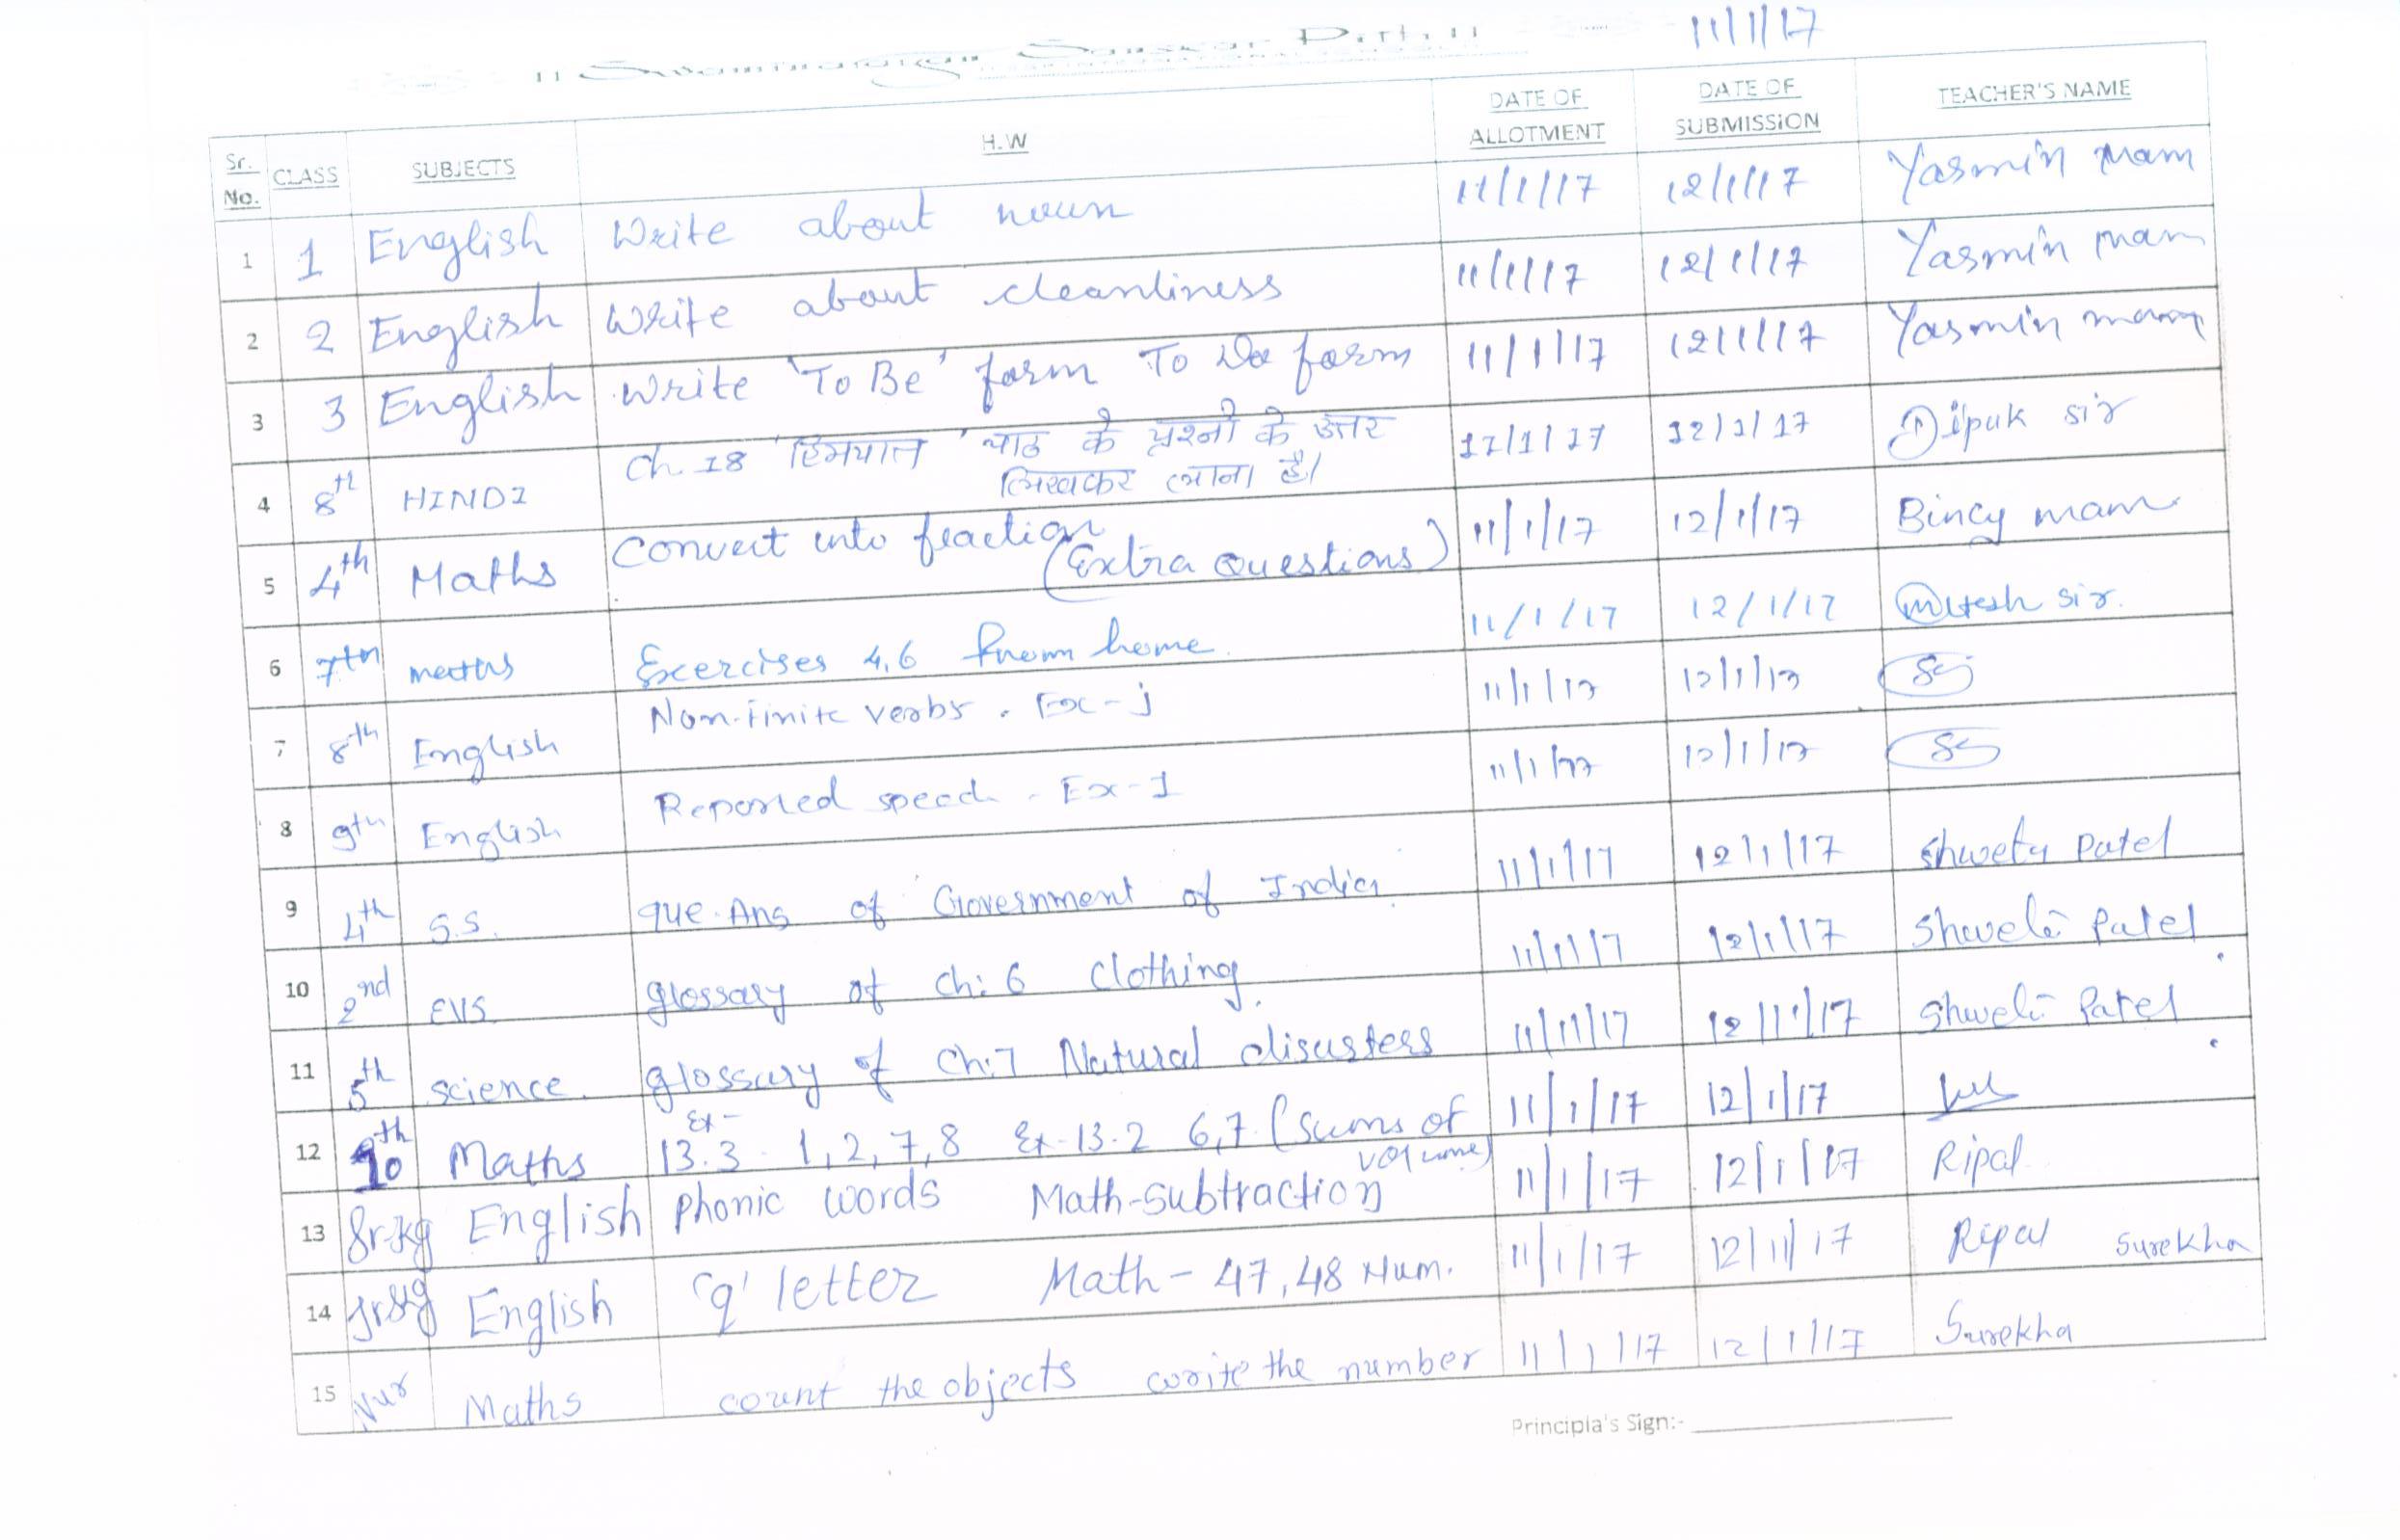 11/1/17
Sr. No. CLASS SUBJECTS H.W DATE OF ALLOTMENT DATE OF SUBMISSION TEACHER'S NAME
1 1 English Write about noun 11/1/17 12/1/17 Yasmin mam
2 2 English Write about cleanliness 11/1/17 12/1/17 Yasmin mam
3 3 English Write 'To Be' form To Do form 11/1/17 12/1/17 Yasmin mam
4 8th HINDI Ch. 18 'हिमपात' पाठ के प्रश्नों के उत्तर 11/1/17 12/1/17 Dipak sir
लिखकर लाना है।
5 4th Maths Convert into fraction 11/1/17 12/1/17 Bincy mam
(Extra Questions)
6 7th maths Exercises 4,6 from home. 11/1/17 12/1/17 Mitesh sir.
7 8th English Non-finite verbs. Ex-j 11/1/17 12/1/17
8 9th English Reported speech - Ex-1 11/1/17 12/1/17
9 4th S.S. que. Ans of Government of India 11/1/17 12/1/17 Shweta Patel
10 2nd EVS glossary of ch: 6 Clothing. 11/1/17 12/1/17 Shweta Patel.
11 5th science. glossary of Ch:7 Natural disasters 11/1/17 12/1/17 Shweta Patel.
12 Maths Ex-13.3 1,2,7,8 Ex-13.2 6,7 (Sums of volume) 11/1/17 12/1/17
13 Sr.kg English phonic words Math-subtraction 11/1/17 12/1/17 Ripal
14 Jr.kg English 'q' letter Math-47,48 Num. 11/1/17 12/1/17 Ripal Surekha
15 Nur Maths count the objects write the number 11/1/17 12/1/17 Surekha
Principla's Sign:-